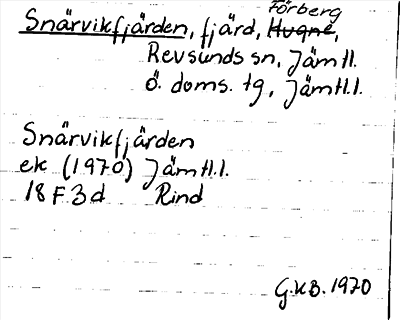 Förberg
Snärvikfjärden, fjärd, Hugne,
Revsunds sn, Jämtl.
Ö. doms. tg, Jämtl.l.
Snärvikfjärden
ek (1970) Jämtl.l.
18 F 3d Rind
G.KB. 1970